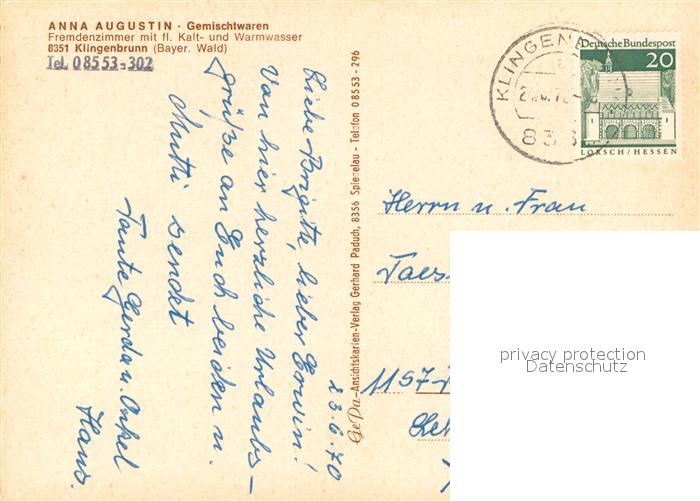 ANNA AUGUSTIN · Gemischtwaren
Fremdenzimmer mit fl. Kalt- und Warmwasser
8351 Klingenbrunn (Bayer. Wald)
Tel. 08553-302
23.6.70
Liebe Brigitte, lieber Erwin!
Von hier herzliche Urlaubs-
grüße an Euch beiden u.
Mutti sendet
Tante Gerda u. Onkel
Hans.
GePa-Ansichtskarten-Verlag Gerhard Paduch, 8356 Spiegelau - Telefon 08553-296
KLINGEN
Deutsche Bundespost
20
LORSCH/HESSEN
Herrn u. Frau
1157
privacy protection
Datenschutz